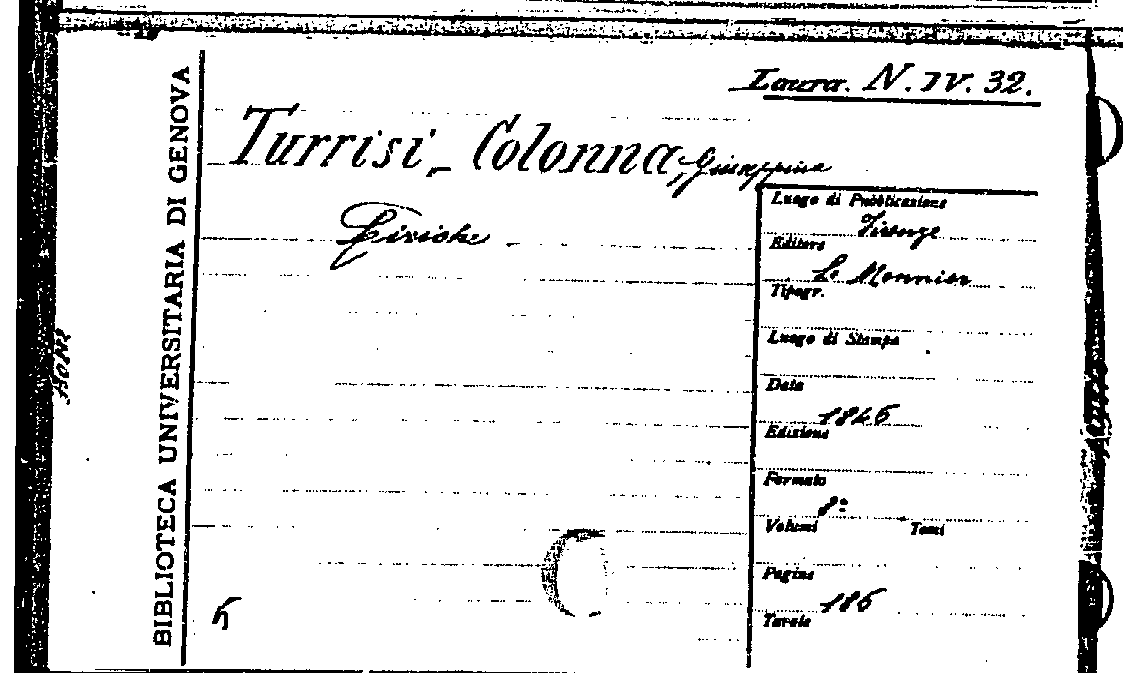 Laura. N. IV. 32.
BIBLIOTECA UNIVERSITARIA DI GENOVA
Turrisi-Colonna, Giuseppina
Liriche
Luogo di Pubblicazione
Firenze
Editore
Le Monnier
Tipogr.
Luogo di Stampa
Data
1846
Edizione
Formato
8º
Volumi Tomi
Pagine
186
Tavole